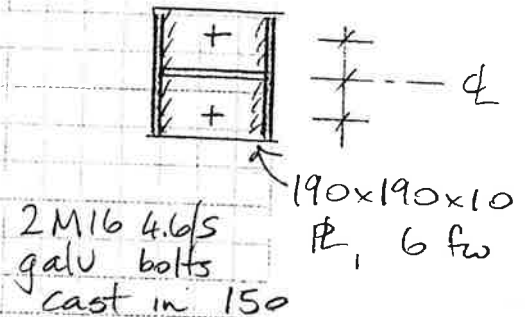 ℄
190x190x10
PL, 6 fw
2 M16 4.6/S
galv bolts
cast in 150